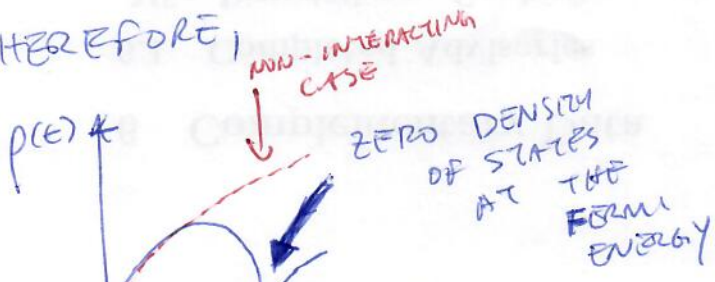 THEREFORE,
NON-INTERACTING
CASE
ρ(E)
ZERO DENSITY
OF STATES
AT THE
FERMI
ENERGY